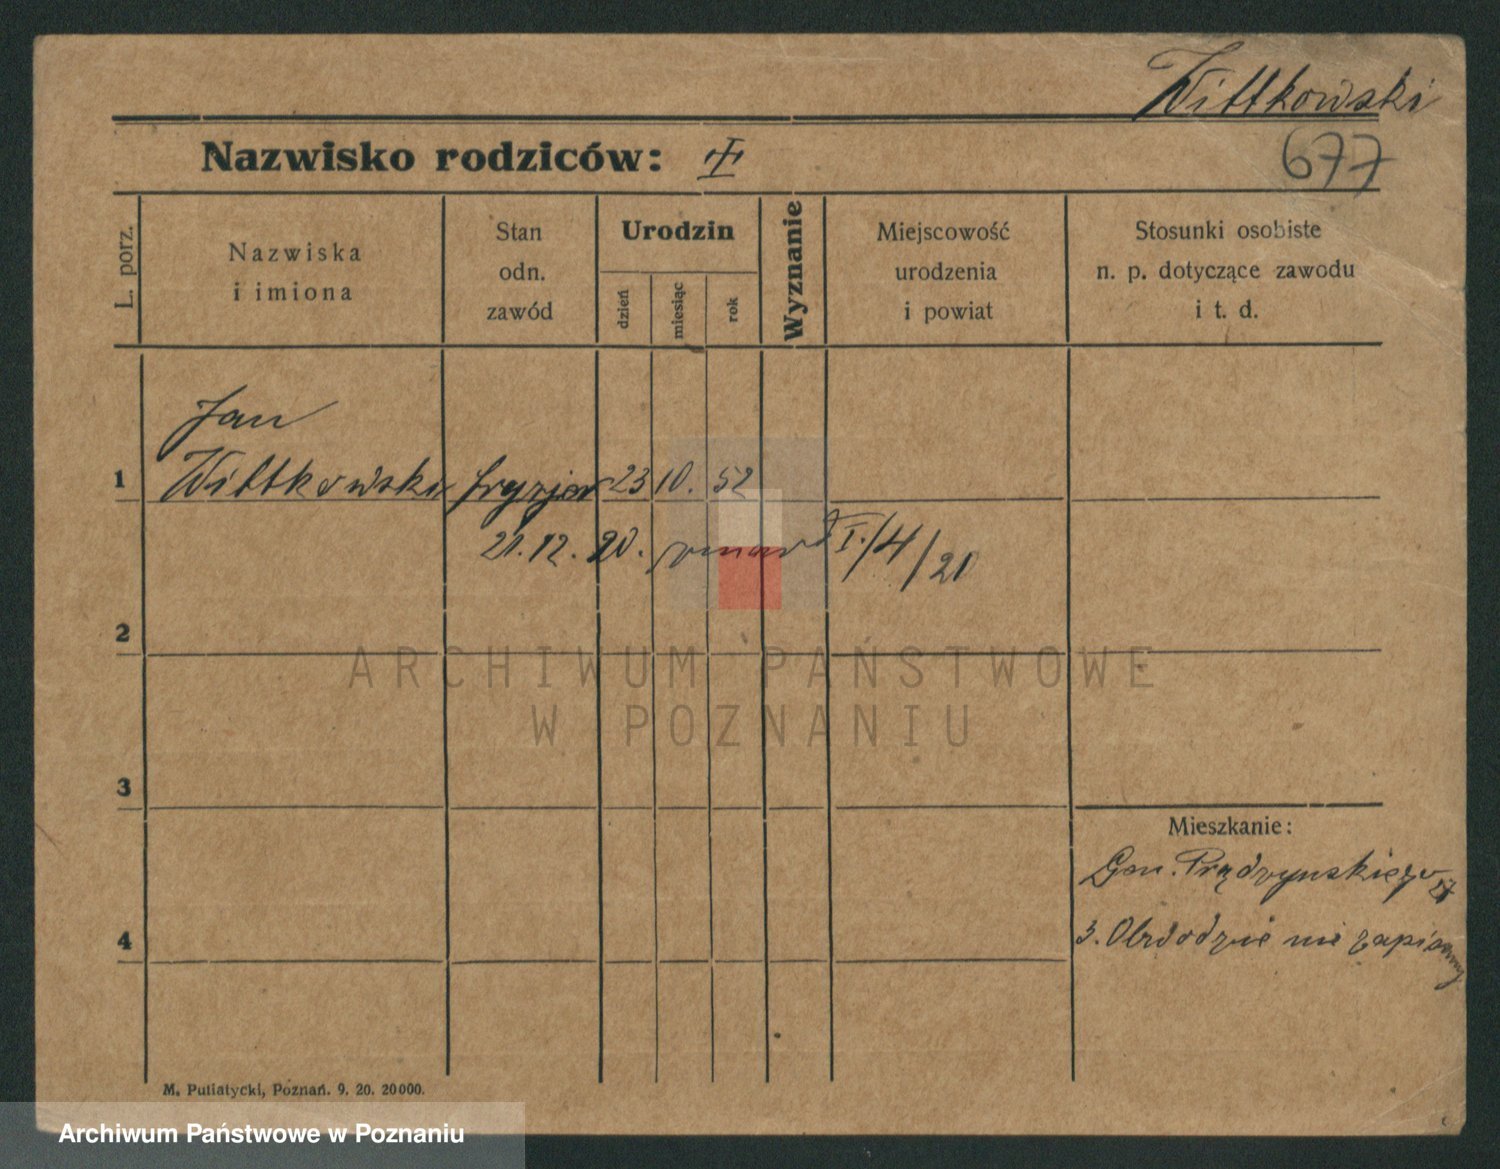 Wittkowski
677
Nazwisko rodziców:
L. porz.
Nazwiska
i imiona
Stan
odn.
zawód
Urodzin
dzień
miesiąc
rok
Wyznanie
Miejscowość
urodzenia
i powiat
Stosunki osobiste
n. p. dotyczące zawodu
i t. d.
Jan
1 Wittkowski fryzjer 23 10. 52
21.12.20. zmarł I./4/21
2
ARCHIWUM PAŃSTWOWE
W POZNANIU
3
Mieszkanie:
Gen. Prądzynskiego 27
4
3. Obwodzie nie zapisany
M. Putiatycki, Poznań. 9. 20. 20000.
Archiwum Państwowe w Poznaniu